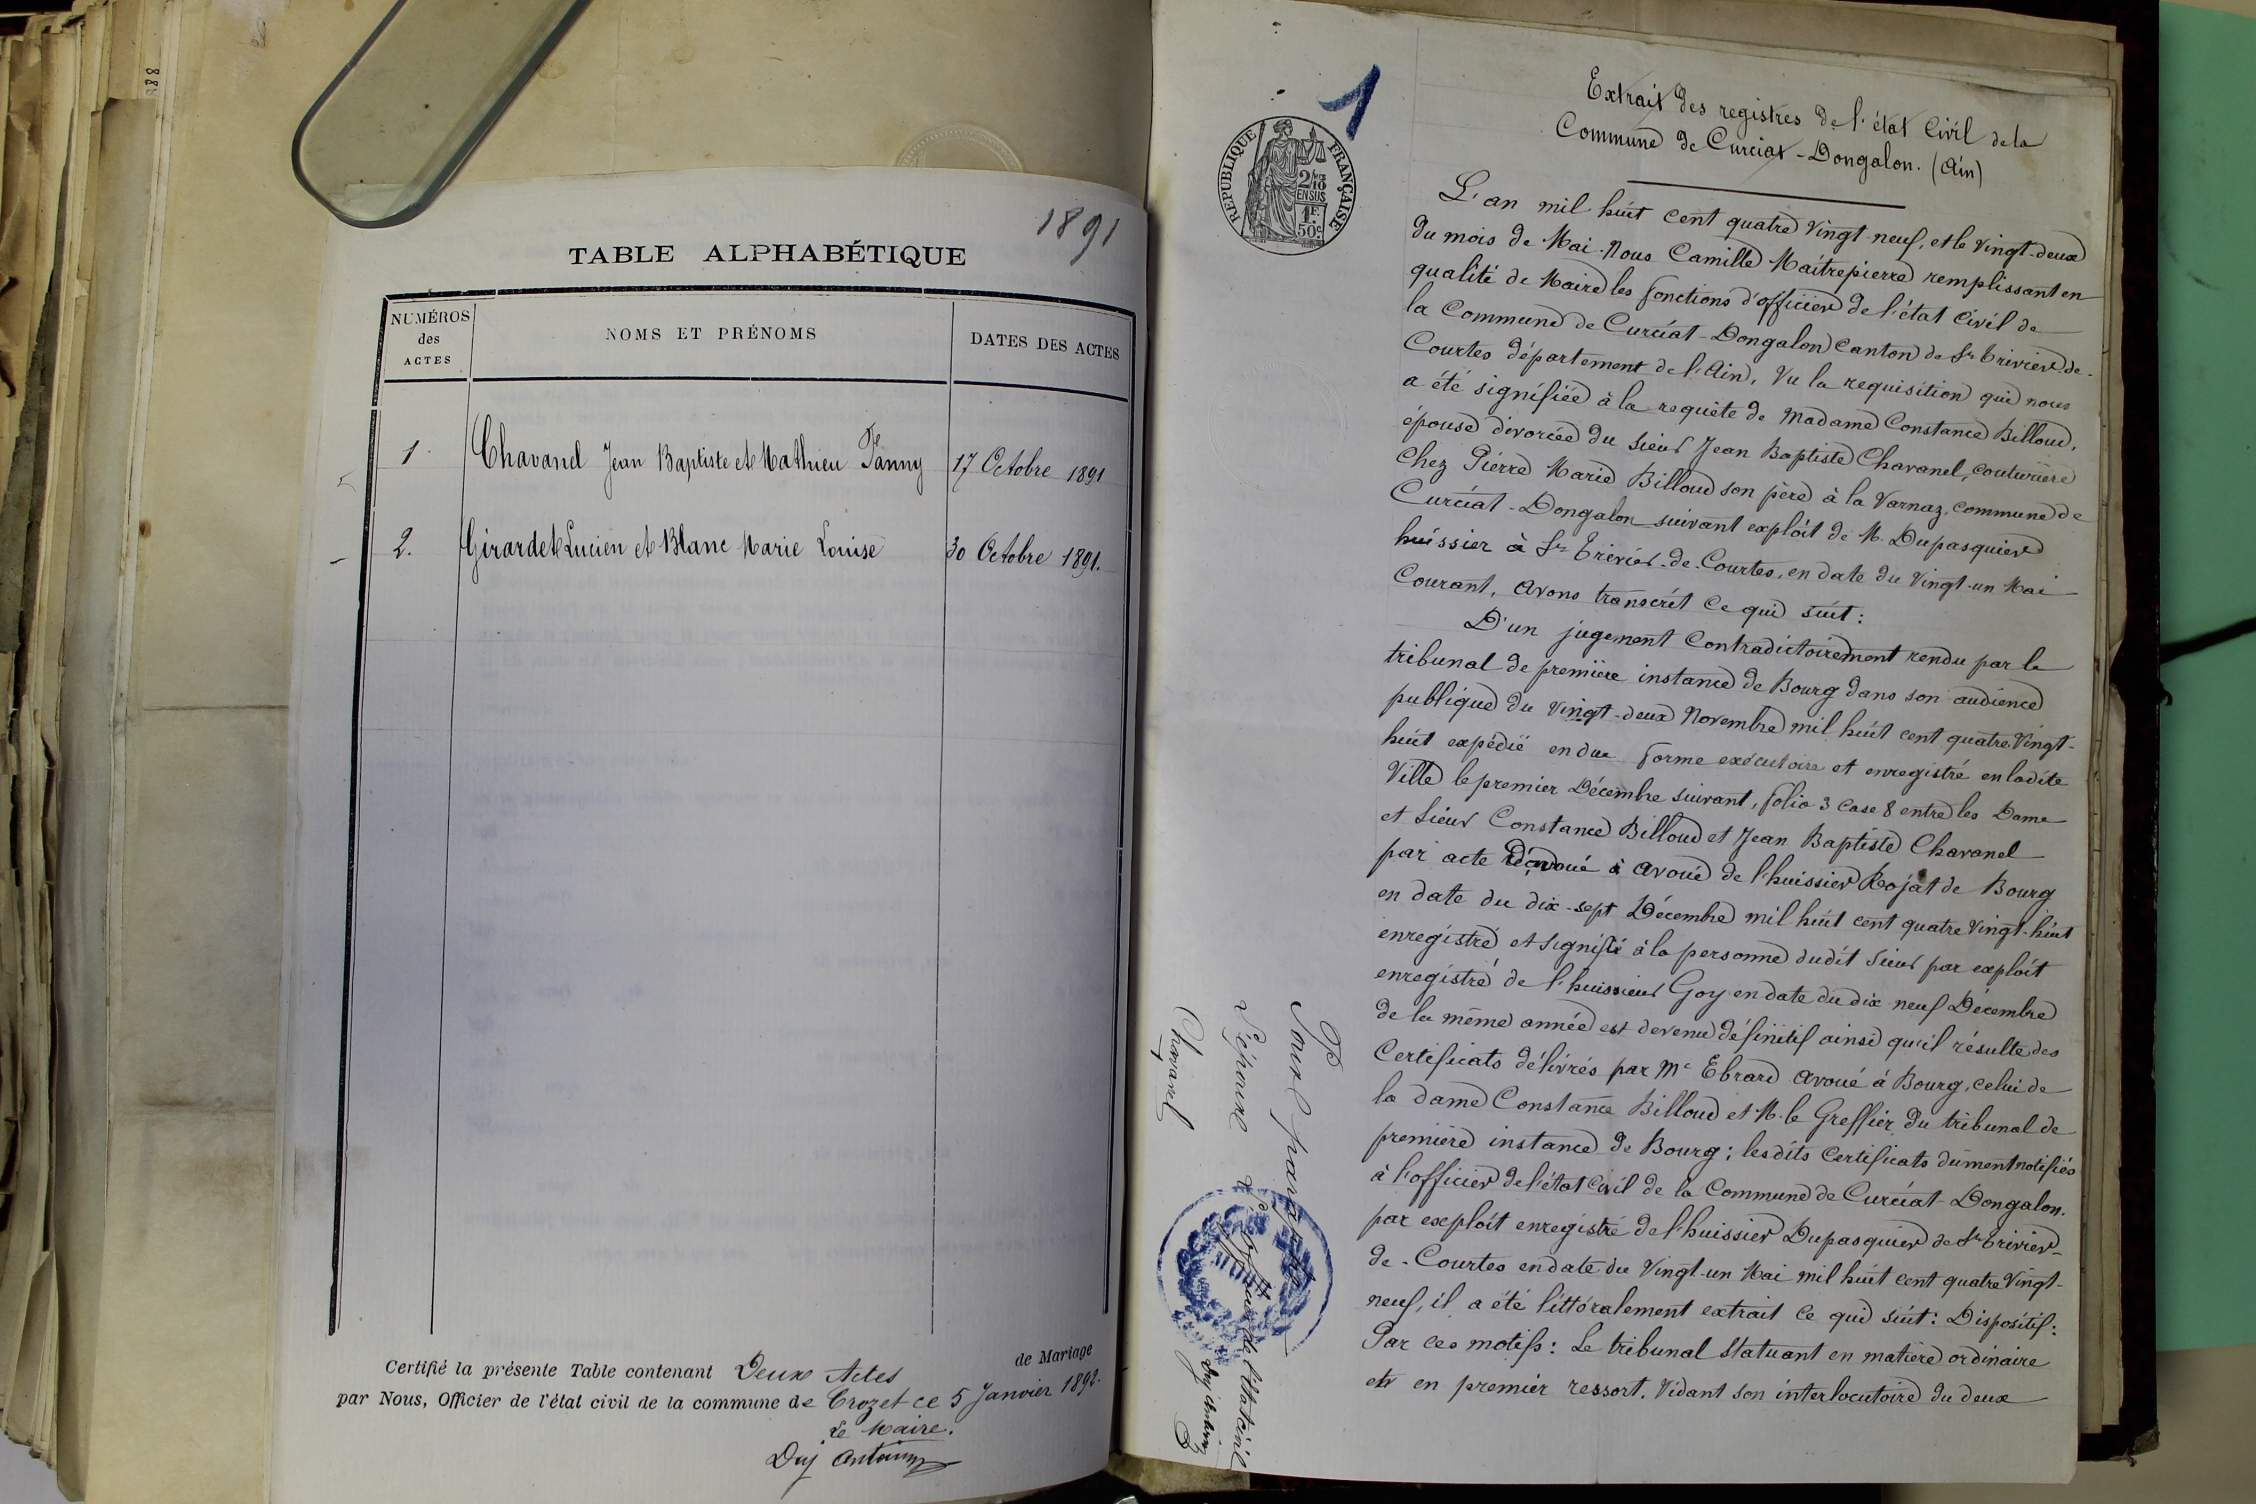 888
1891
TABLE ALPHABÉTIQUE
NUMÉROS
des
ACTES
NOMS ET PRÉNOMS
DATES DES ACTES
1 Chavanel Jean Baptiste et Mathieu Fanny 17 Octobre 1891
2. Girardet Lucien et Blanc Marie Louise 30 Octobre 1891.
Certifié la présente Table contenant Deux Actes de Mariage
par Nous, Officier de l'état civil de la commune de Crozet ce 5 Janvier 1892.
Le Maire.
Duj Antoine
1
RÉPUBLIQUE FRANÇAISE
2/10
EN SUS
1F.
50c.
Extrait des registres de l'état Civil de la
Commune de Curciat-Dongalon. (Ain)
L'an mil huit cent quatre vingt-neuf, et le vingt-deux
du mois de Mai. Nous Camille Maîtrepierre remplissant en
qualité de Maire les fonctions d'officier de l'état Civil de
la Commune de Curciat-Dongalon Canton de St Trivier-de-
Courtes département de l'Ain, Vu la requisition qui nous
a été signifiée à la requête de Madame Constance Billoud,
épouse divorcée du sieur Jean Baptiste Chavanel, couturière
chez Pierre Marie Billoud son père à la Varnaz, commune de
Curciat-Dongalon suivant exploit de M. Dupasquier
huissier à St Trivier-de-Courtes, en date du vingt-un Mai
Courant, avons transcrit ce qui suit:
D'un jugement Contradictoirement rendu par le
tribunal de première instance de Bourg dans son audience
publique du vingt-deux Novembre mil huit cent quatre vingt-
huit expédié en due forme exécutoire et enregistré en ladite
Ville le premier Décembre suivant, folio 3 case 8 entre les Dame
et Sieur Constance Billoud et Jean Baptiste Chavanel
par acte d'avoué à avoué de l'huissier Rojat de Bourg
en date du dix-sept Décembre mil huit cent quatre vingt-huit
enregistré et signifié à la personne dudit Sieur par exploit
enregistré de l'huissier Goy en date du dix neuf Décembre
de la même année est devenu définitif ainsi qu'il résulte des
Certificats délivrés par Me Ebrard avoué à Bourg, celui de
la dame Constance Billoud et M. le Greffier du tribunal de
première instance de Bourg; lesdits Certificats dûment notifiés
à l'officier de l'état Civil de la Commune de Curciat-Dongalon.
par exploit enregistré de l'huissier Dupasquier de St Trivier-
de-Courtes en date du Vingt-un Mai mil huit cent quatre Vingt-
neuf, il a été littéralement extrait ce qui suit: Dispositif:
Par ces motifs: Le tribunal Statuant en matière ordinaire
et en premier ressort. Vidant son interlocutoire du deux
L'épouse
Chavanel
L'officier de l'état civil
Duj Antoine